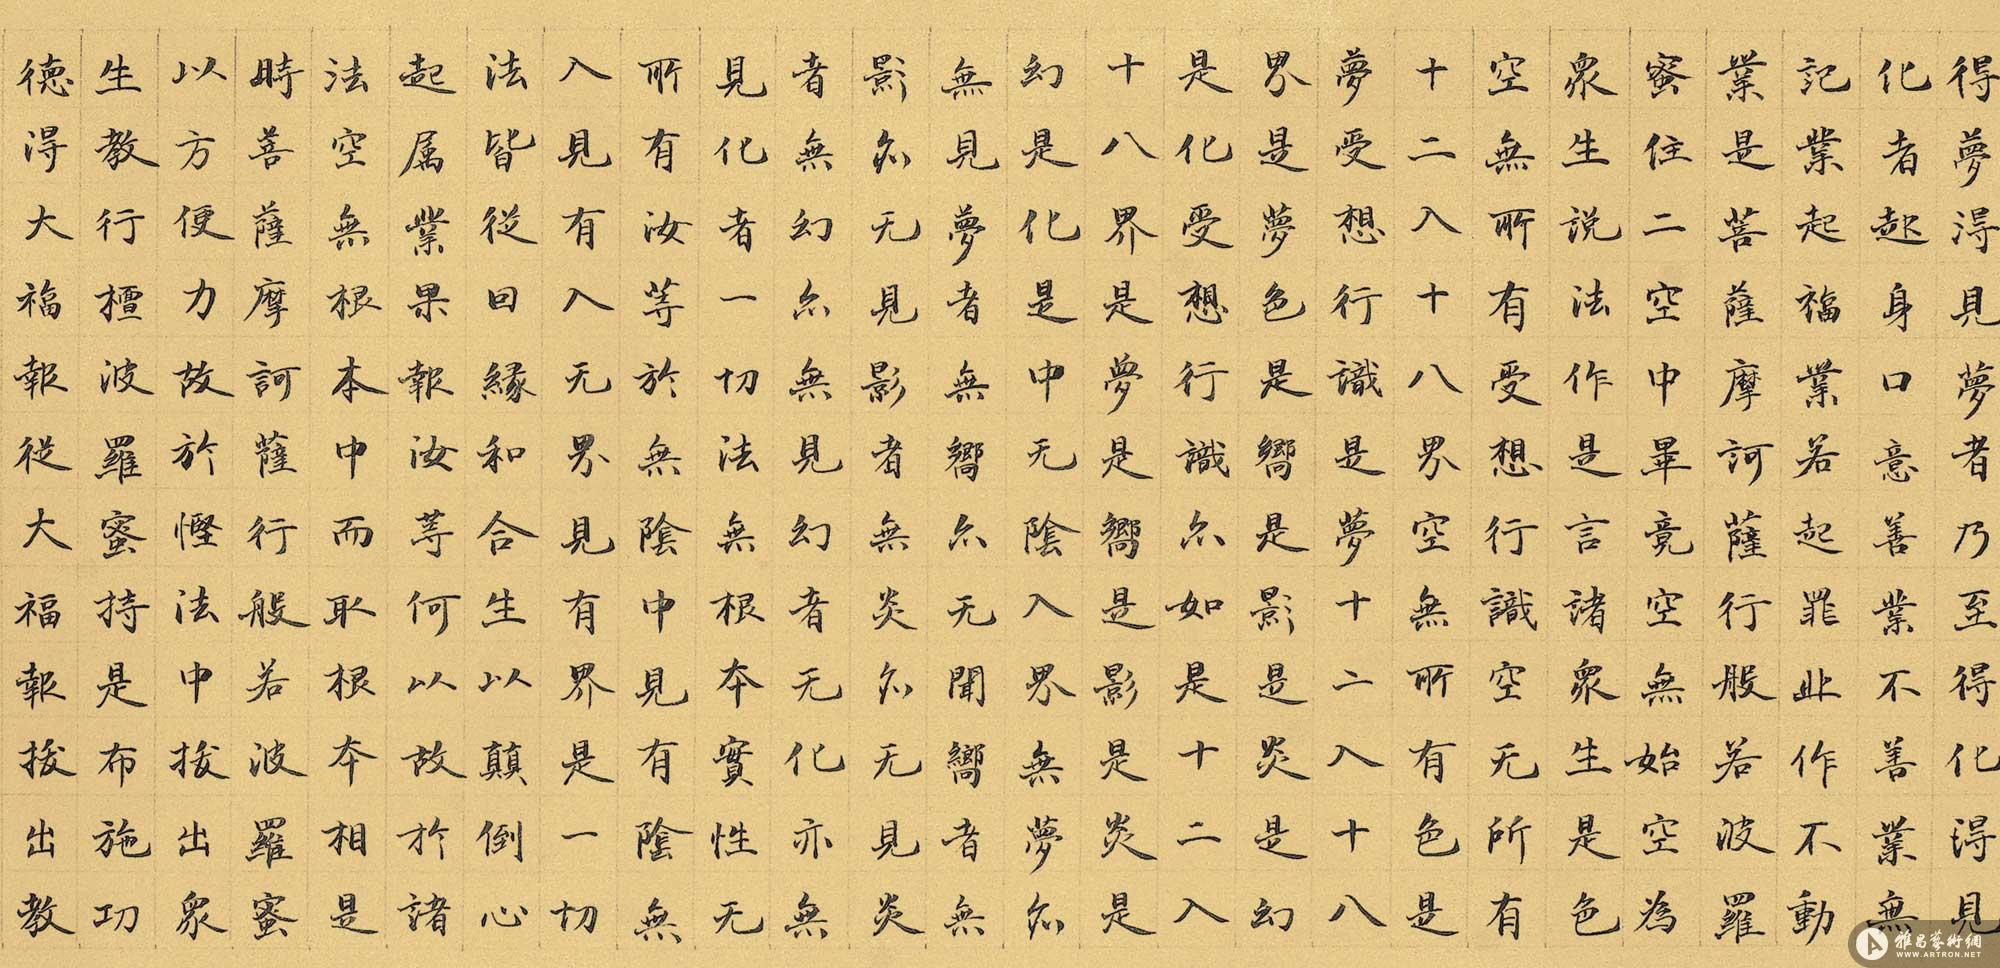 得夢得見夢者乃至得化得見
化者起身口意善業不善業無
記業起福業若起罪业作不動
業是菩薩摩訶薩行般若波羅
蜜住二空中畢竟空無始空為
衆生説法作是言諸衆生是色
空無所有受想行識空无所有
十二入十八界空無所有色是
夢受想行識是夢十二入十八
界是夢色是嚮是影是炎是幻
是化受想行識尒如是十二入
十八界是夢是嚮是影是炎是
幻是化是中无陰入界無夢尒
無見夢者無嚮尒无聞嚮者無
影尒无見影者無炎尒无見炎
者無幻尒無見幻者无化亦無
見化者一切法無根本實性无
所有汝等於無陰中見有陰無
入見有入无界見有界是一切
法皆從因緣和合生以顛倒心
起属業果報汝等何以故於諸
法空無根本中而取根本相是
時菩薩摩訶薩行般若波羅蜜
以方便力故於慳法中拔出衆
生教行檀波羅蜜持是布施功
德得大福報從大福報拔出教
雅昌藝術網
WWW.ARTRON.NET